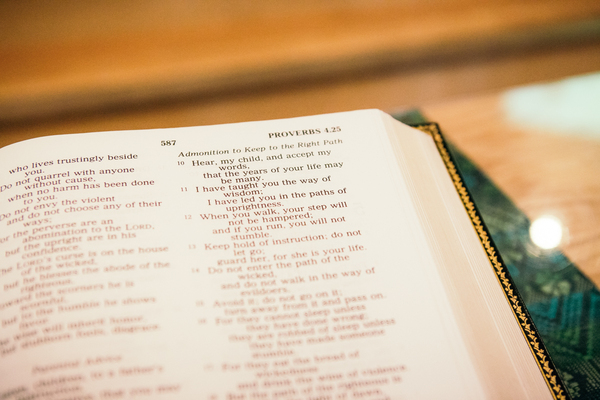 587
PROVERBS 4.25
who lives trustingly beside
you.
Do not quarrel with anyone
without cause,
when no harm has been done
to you.
Do not envy the violent
and do not choose any of their
ways;
for the perverse are an
abomination to the LORD,
but the upright are in his
confidence.
The LORD's curse is on the house
of the wicked,
but he blesses the abode of the
righteous.
Toward the scorners he is
scornful,
but to the humble he shows
favor.
The wise will inherit honor,
but stubborn fools, disgrace
Admonition to Keep to the Right Path
10 Hear, my child, and accept my
words,
that the years of your life may
be many.
11 I have taught you the way of
wisdom;
I have led you in the paths of
uprightness.
12 When you walk, your step will
not be hampered;
and if you run, you will not
stumble.
13 Keep hold of instruction; do not
let go;
guard her, for she is your life.
14 Do not enter the path of the
wicked,
and do not walk in the way of
evildoers.
15 Avoid it; do not go on it;
turn away from it and pass on.
16 For they cannot sleep unless
they have done wrong;
they are robbed of sleep unless
they have made someone
stumble.
17 For they eat the bread of
wickedness
and drink the wine of violence.
But the path of the righteous is